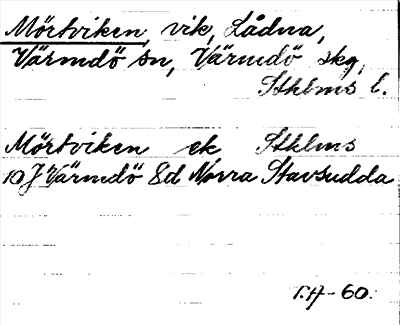 Mörtviken, vik, Lådna,
Värmdö sn, Värmdö skg,
Sthlms l.
Mörtviken ek Sthlms
10J Värmdö 8d Norra Stavsudda
T.H-60.